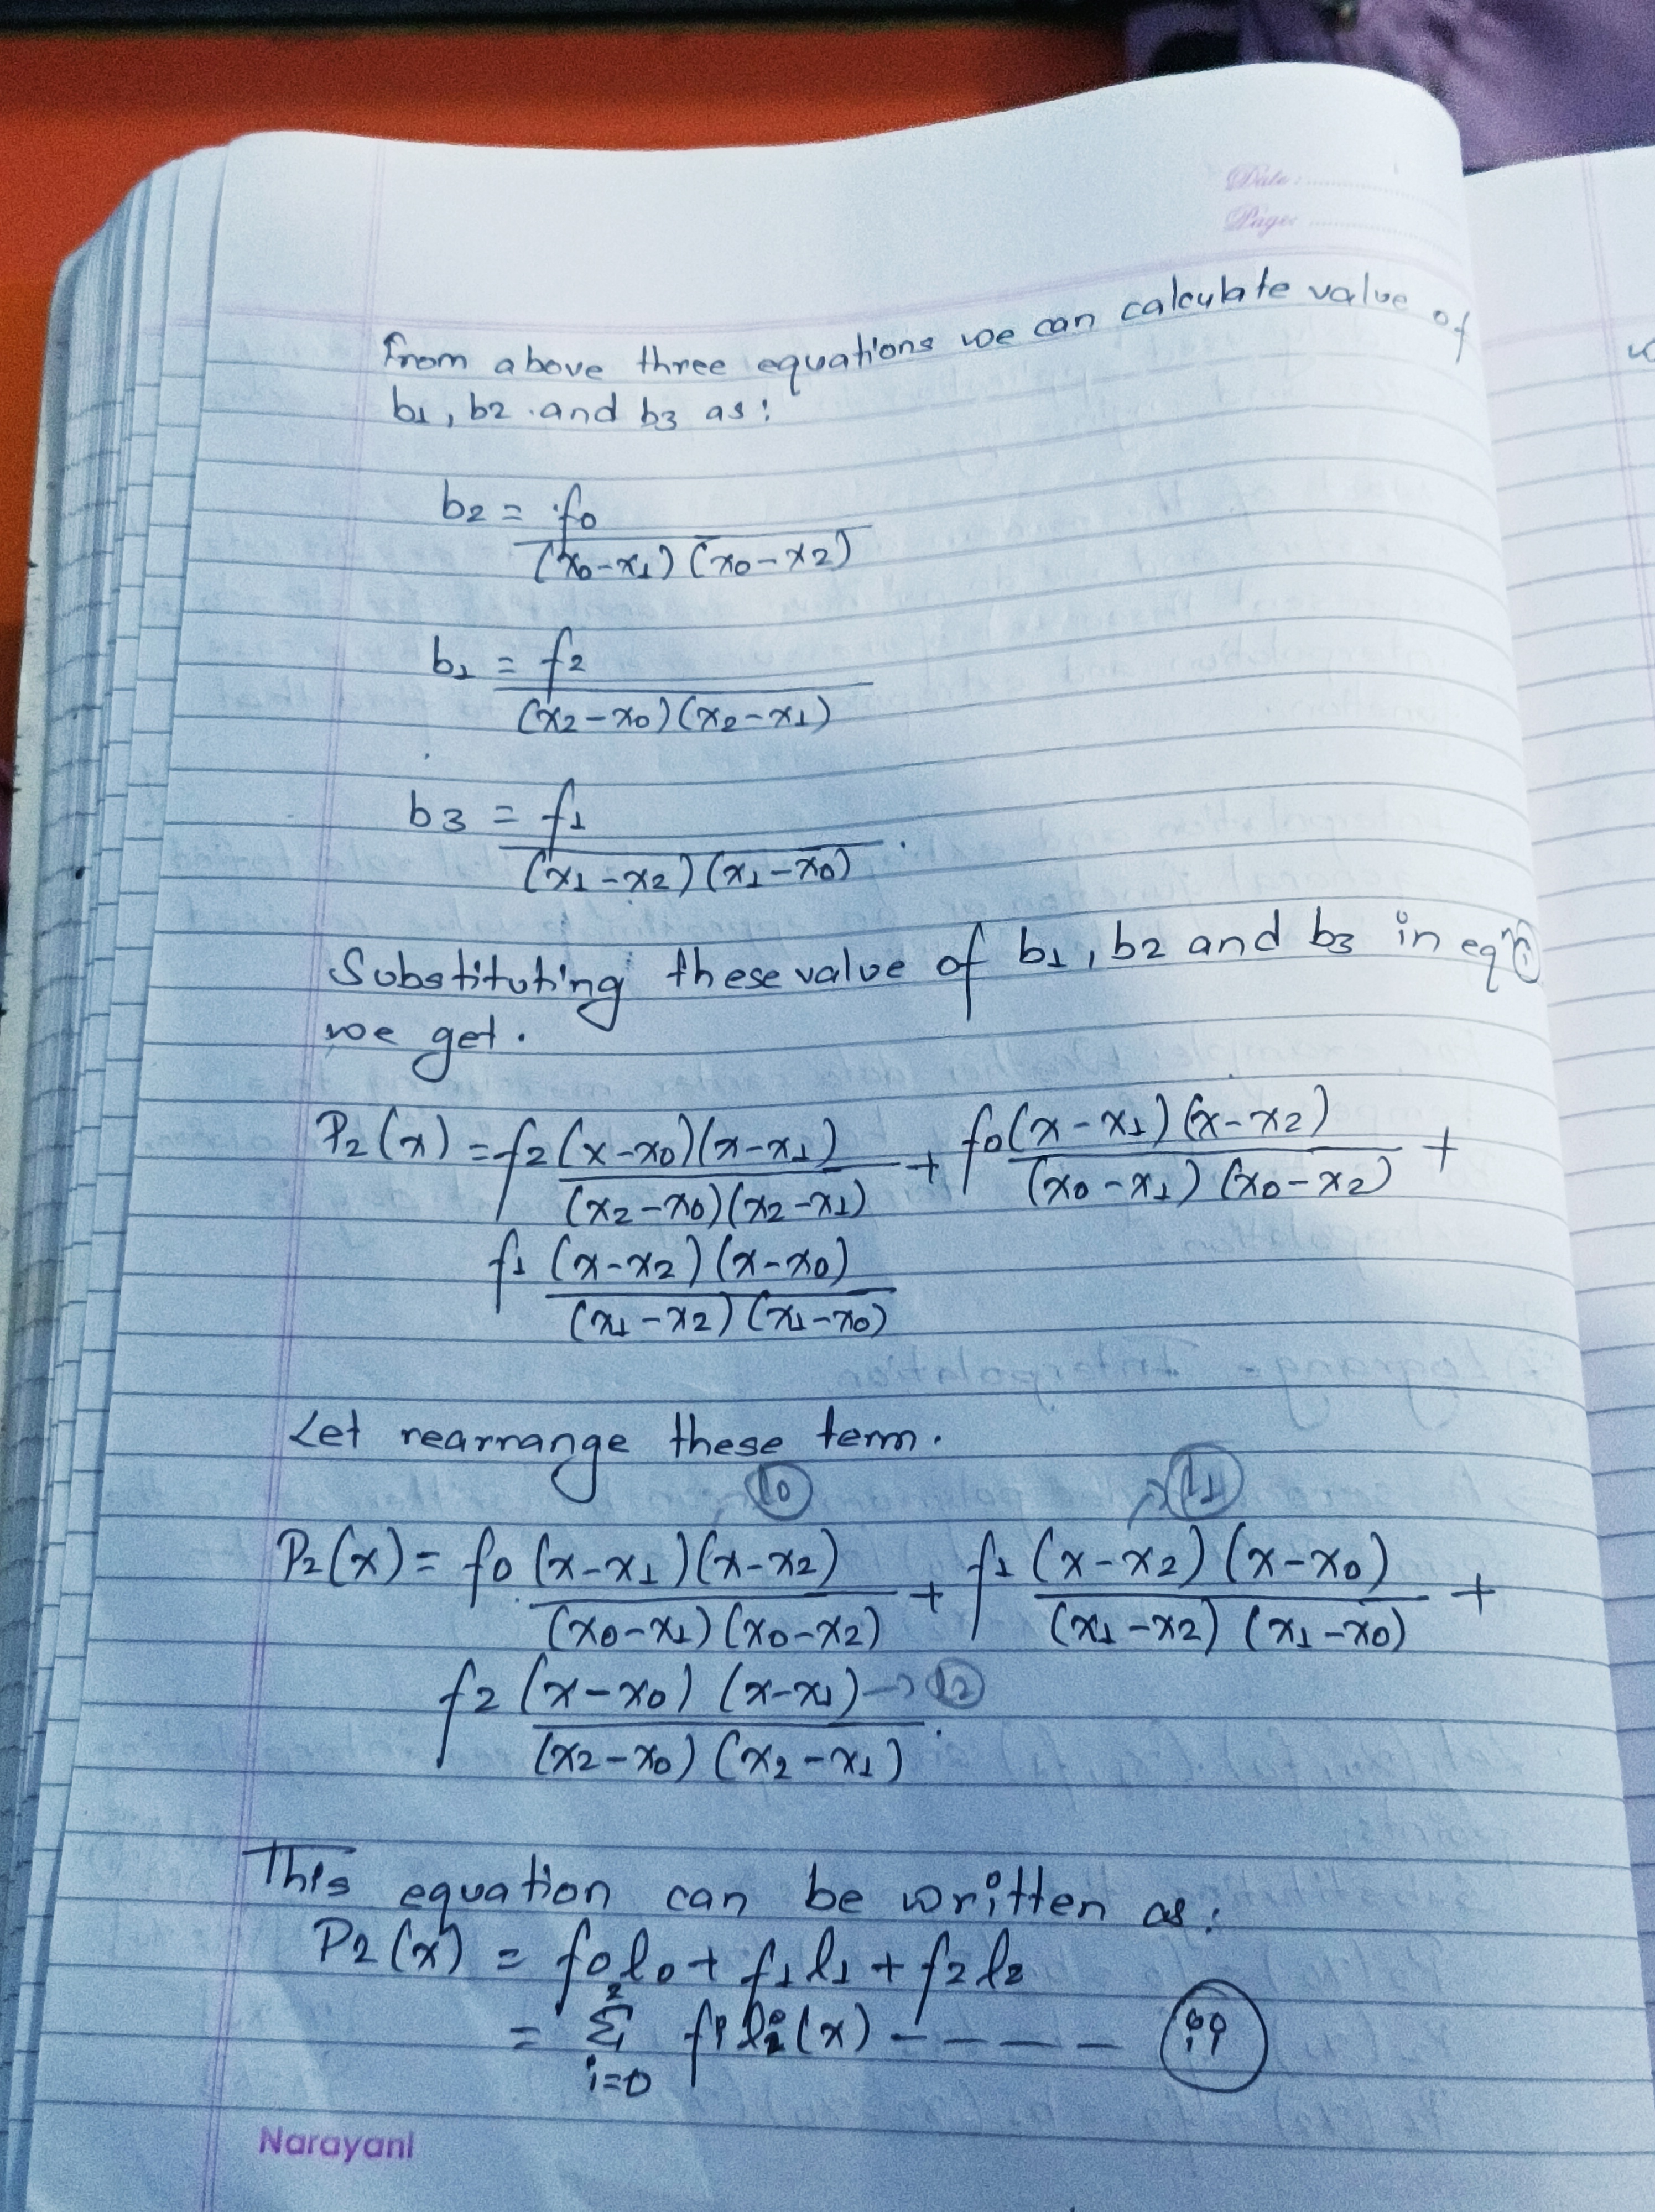 Date :
Page:
from above three equations we can calculate value of
b1, b2 and b3 as:
b2 = f0
(x0-x1) (x0-x2)
b1 = f2
(x2-x0)(x2-x1)
b3 = f1
(x1-x2)(x1-x0).
Substituting these value of b1, b2 and b3 in eqn (i)
we get.
P2(x) = f2(x-x0)(x-x1) + f0(x-x1)(x-x2) +
(x2-x0)(x2-x1) (x0-x1) (x0-x2)
f1 (x-x2)(x-x0)
(x1-x2) (x1-x0)
Let rearrange these term.
l0 l1
P2(x) = f0 (x-x1)(x-x2) + f1 (x-x2) (x-x0) +
(x0-x1)(x0-x2) (x1-x2) (x1-x0)
f2 (x-x0) (x-x1) → l2
(x2-x0) (x2-x1).
This equation can be written as:
P2(x) = f0l0 + f1l1 + f2l2
2
= Σ fi li(x) - - - - (ii)
i=0
Narayani